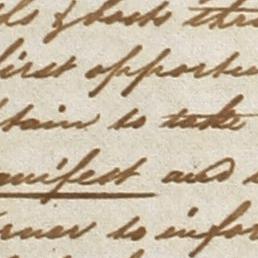 & docks
first opportu
tain to take
anifest and
rner to infor